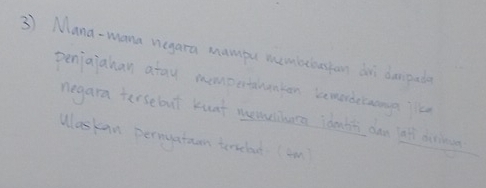 3) Mana-mana negara mampu membebaskan diri daripada
penjajahan atau mempertahankan kemerdekaannya jika
negara tersebut kuat memelihara identiti dan jati dirinya.
Ulaskan pernyataan tersebut. (4m)